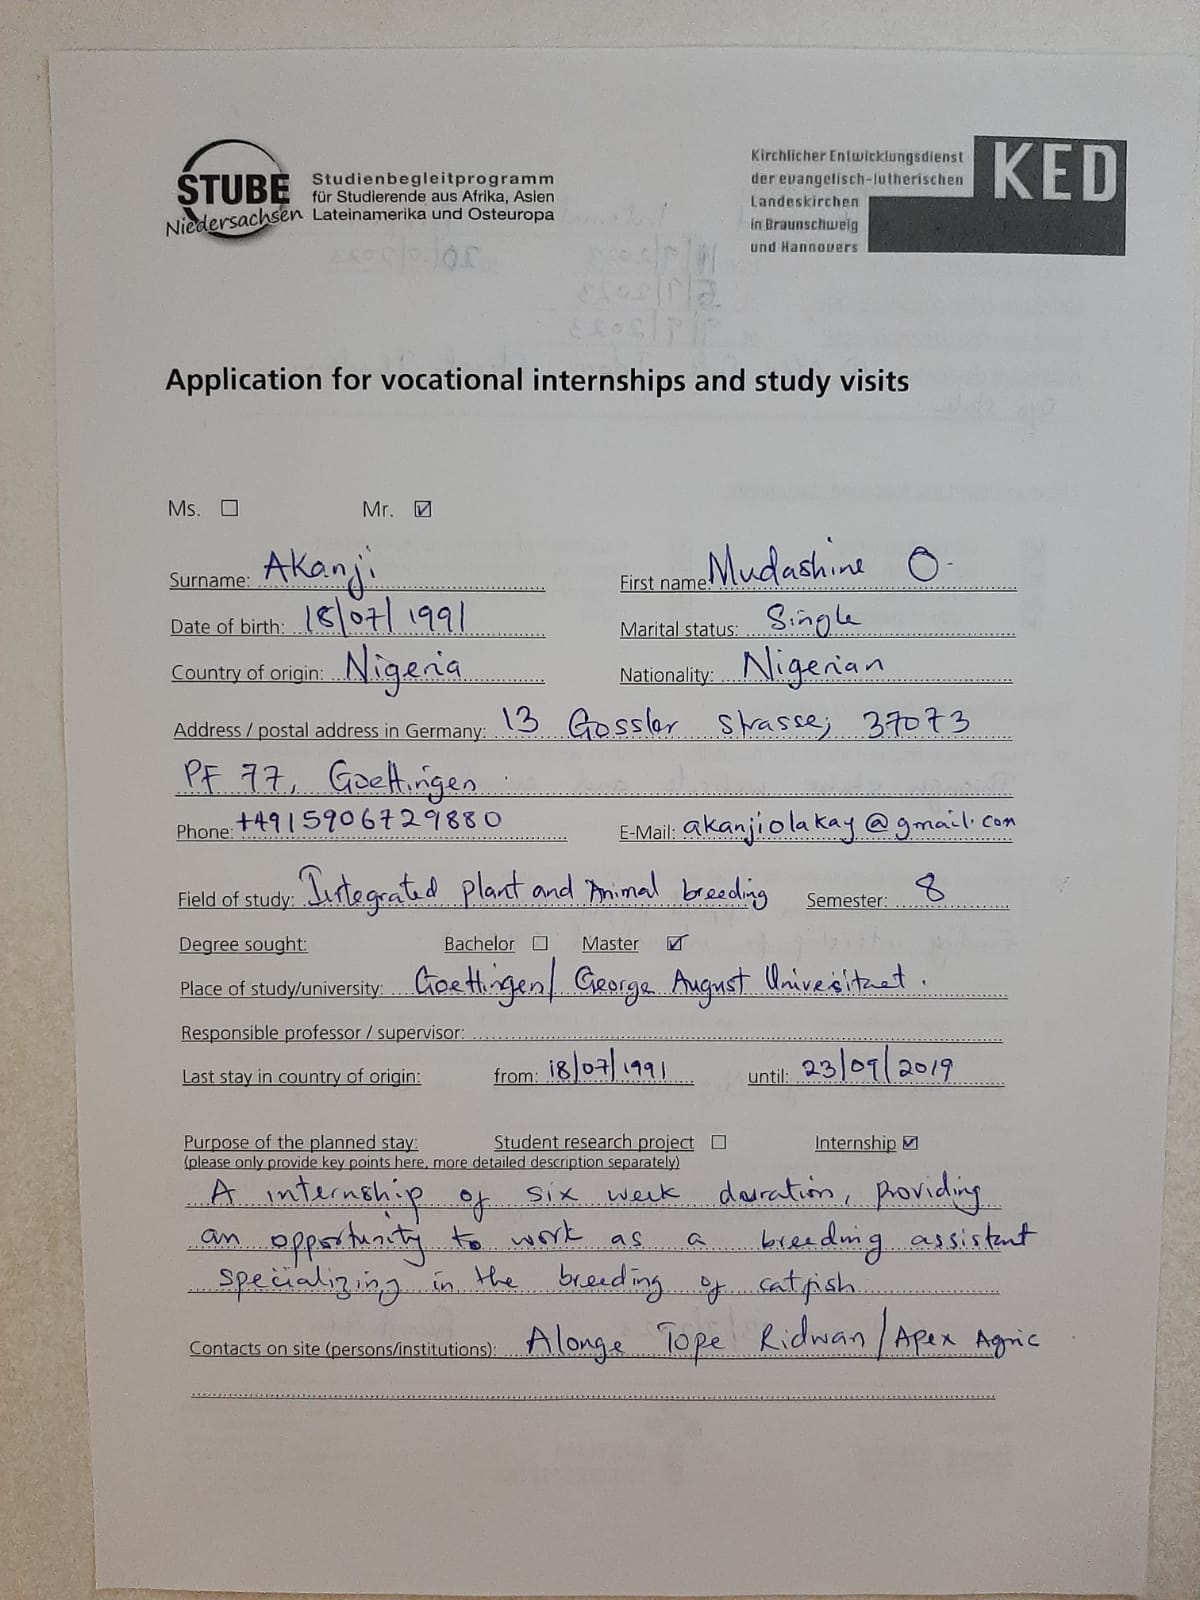 STUBE
Niedersachsen
Studienbegleitprogramm
für Studierende aus Afrika, Asien
Lateinamerika und Osteuropa
Kirchlicher Entwicklungsdienst
der evangelisch-lutherischen
Landeskirchen
in Braunschweig
und Hannovers
KED
Application for vocational internships and study visits
Ms. ☐ Mr. ☑
Surname: Akanji First name: Mudashine O.
Date of birth: 18/07/1991 Marital status: Single
Country of origin: Nigeria Nationality: Nigerian
Address / postal address in Germany: 13 Gossler strasse, 37073
PF 77, Goettingen
Phone: +4915906729880 E-Mail: akanjiolakay@gmail.com
Field of study: Integrated plant and Animal breeding Semester: 8
Degree sought: Bachelor ☐ Master ☑
Place of study/university: Goettingen/ George August Universitaet.
Responsible professor / supervisor:
Last stay in country of origin: from: 18/07/1991 until: 23/09/2019
Purpose of the planned stay: Student research project ☐ Internship ☑
(please only provide key points here, more detailed description separately)
A internship of six week duration, providing
an opportunity to work as a breeding assistant
specializing in the breeding of catfish
Contacts on site (persons/institutions): Alonge Tope Ridwan/Apex Agric